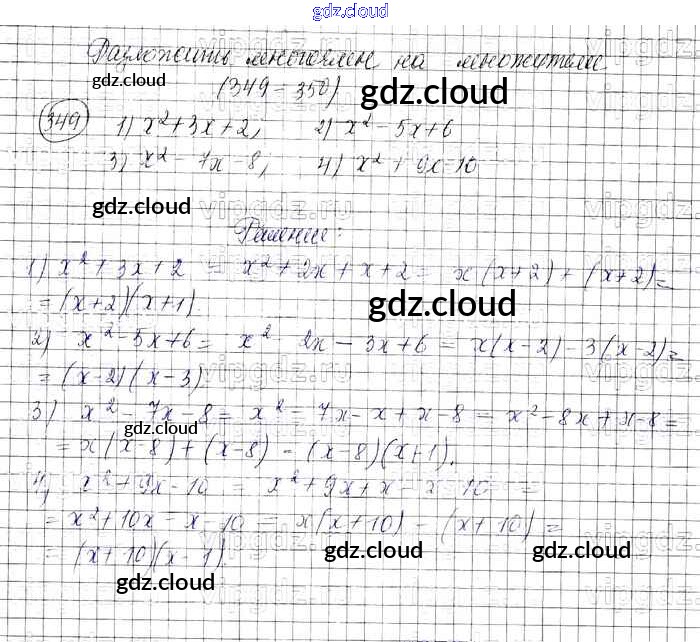 gdz.cloud
Разложить многочлен на множители
gdz.cloud
(349-350) gdz.cloud
349 1) x²+3x+2, 2) x² - 5x+6
3) x² - 7x - 8, 4) x² + 9x-10
gdz.cloud vipgdz.ru
Решение:
1) x² + 3x + 2 = x² + 2x + x + 2 = x(x+2) + (x+2) =
= (x+2)(x+1). gdz.cloud
2) x² - 5x+6 = x² 2x - 3x+6 = x(x-2) - 3(x-2) =
= (x-2)(x-3)
3) x² - 7x - 8 = x² - 7x - x + x - 8 = x² - 8x + x - 8 =
gdz.cloud
= x(x-8) + (x-8) - (x-8)(x+1).
4) x² + 9x - 10 = x² + 9x + x - x - 10 =
= x² + 10x - x - 10 = x(x+10) - (x+10) =
= (x+10)(x-1) gdz.cloud gdz.cloud
gdz.cloud